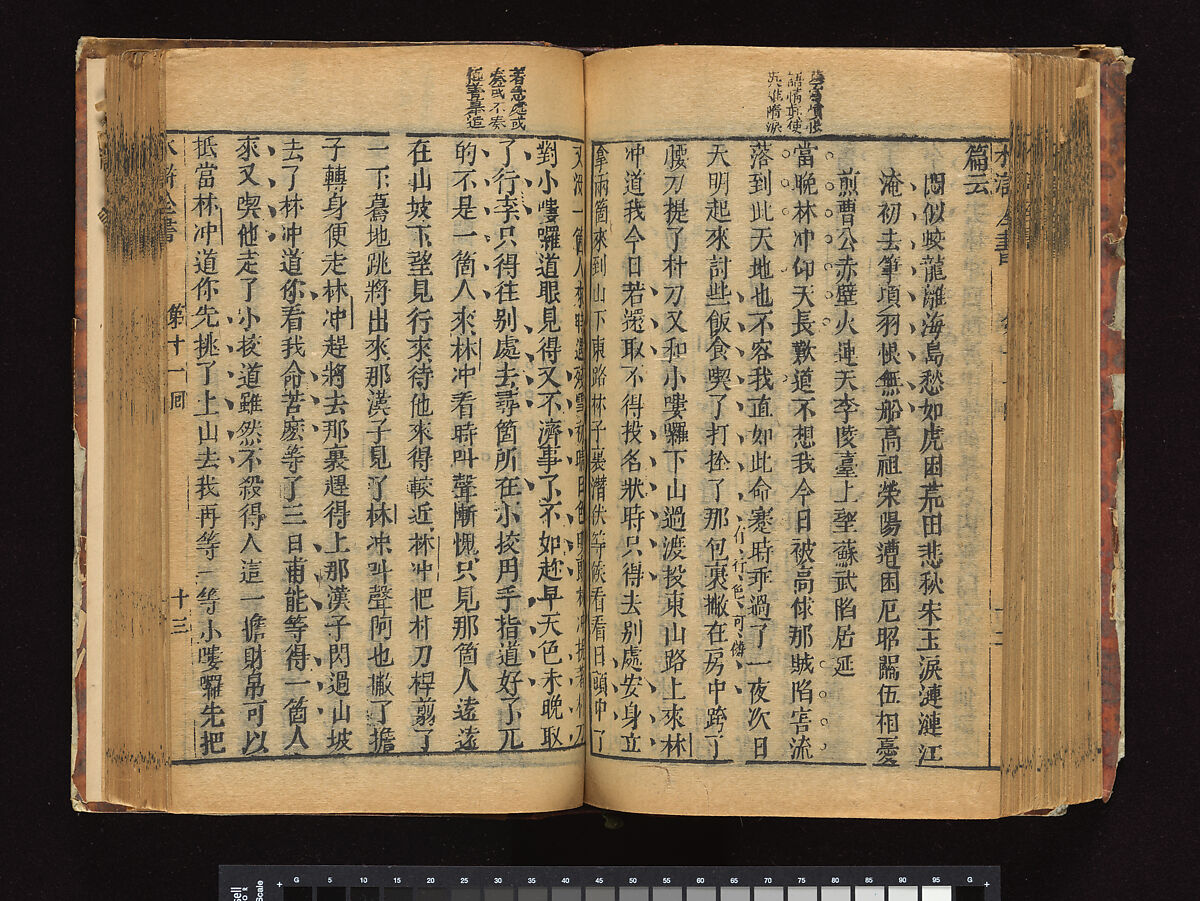 水滸全書
篇云
悶似蛟龍離海島愁如虎困荒田悲秋宋玉淚漣漣江
淹初去筆項羽恨無船高祖滎陽遭困厄昭關伍相憂
煎曹公赤壁火連天李陵臺上望蘇武陷居延
當晚林冲仰天長歎道不想我今日被高俅那賊陷害流
落到此天地也不容我直如此命蹇時乖過了一夜次日
天明起來討些飯食喫了打拴了那包裹撇在房中跨了
行、行、色、可、憐、
腰刀提了朴刀又和小嘍囉下山過渡投東山路上來林
冲道我今日若還取不得投名狀時只得去別處安身立
兩箇來到山下東路林子裏潛伏等候看看日頭中了
又沒一箇人來時遇殘雪初晴日色明朗林冲提着朴刀
對小嘍囉道眼見得又不濟事了不如趁早天色未晚取
了行李只得往別處去尋箇所在小校用手指道好了兀
的不是一箇人來林冲看時叫聲慚愧只見那箇人遠遠
在山坡下望見行來待他來得較近林冲把朴刀桿剪了
一下驀地跳將出來那漢子見了林冲叫聲阿也撇了擔
子轉身便走林冲趕將去那裏趕得上那漢子閃過山坡
去了林冲道你看我命苦麽等了三日甫能等得一箇人
來又喫他走了小校道雖然不殺得人這一擔財帛可以
抵當林冲道你先挑了上山去我再等一等小嘍囉先把
水滸全書
第十一回
十三
若急處或
奏或不奏
G 5 10 15 20 25 30 35 40 45 50 55 60 65 70 75 80 85 90 95 G